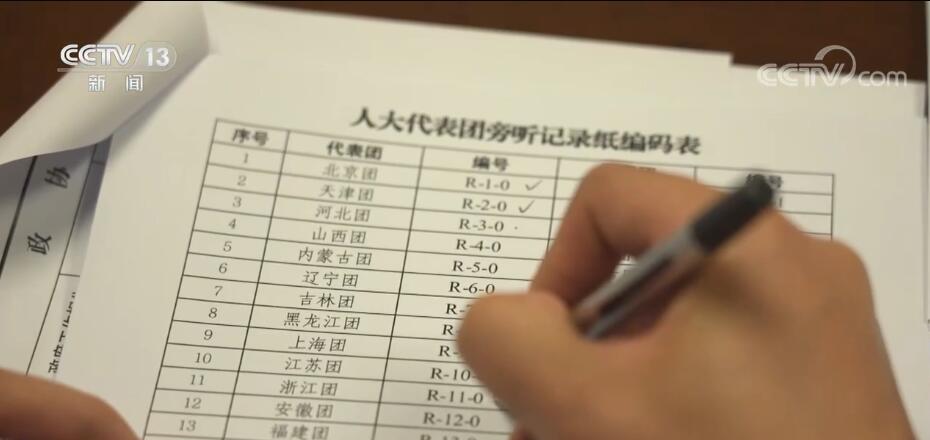 CCTV 13
新闻
CCTV.com
政协
人大代表团旁听记录纸编码表
序号 代表团 编号 编号
1 北京团 R-1-0 ✓
2 天津团 R-2-0 ✓
3 河北团 R-3-0
4 山西团 R-4-0
5 内蒙古团 R-5-0
6 辽宁团 R-6-0
7 吉林团
8 黑龙江团
9 上海团
10 江苏团 R-10-
11 浙江团 R-11-0
12 安徽团 R-12-0
13 福建团